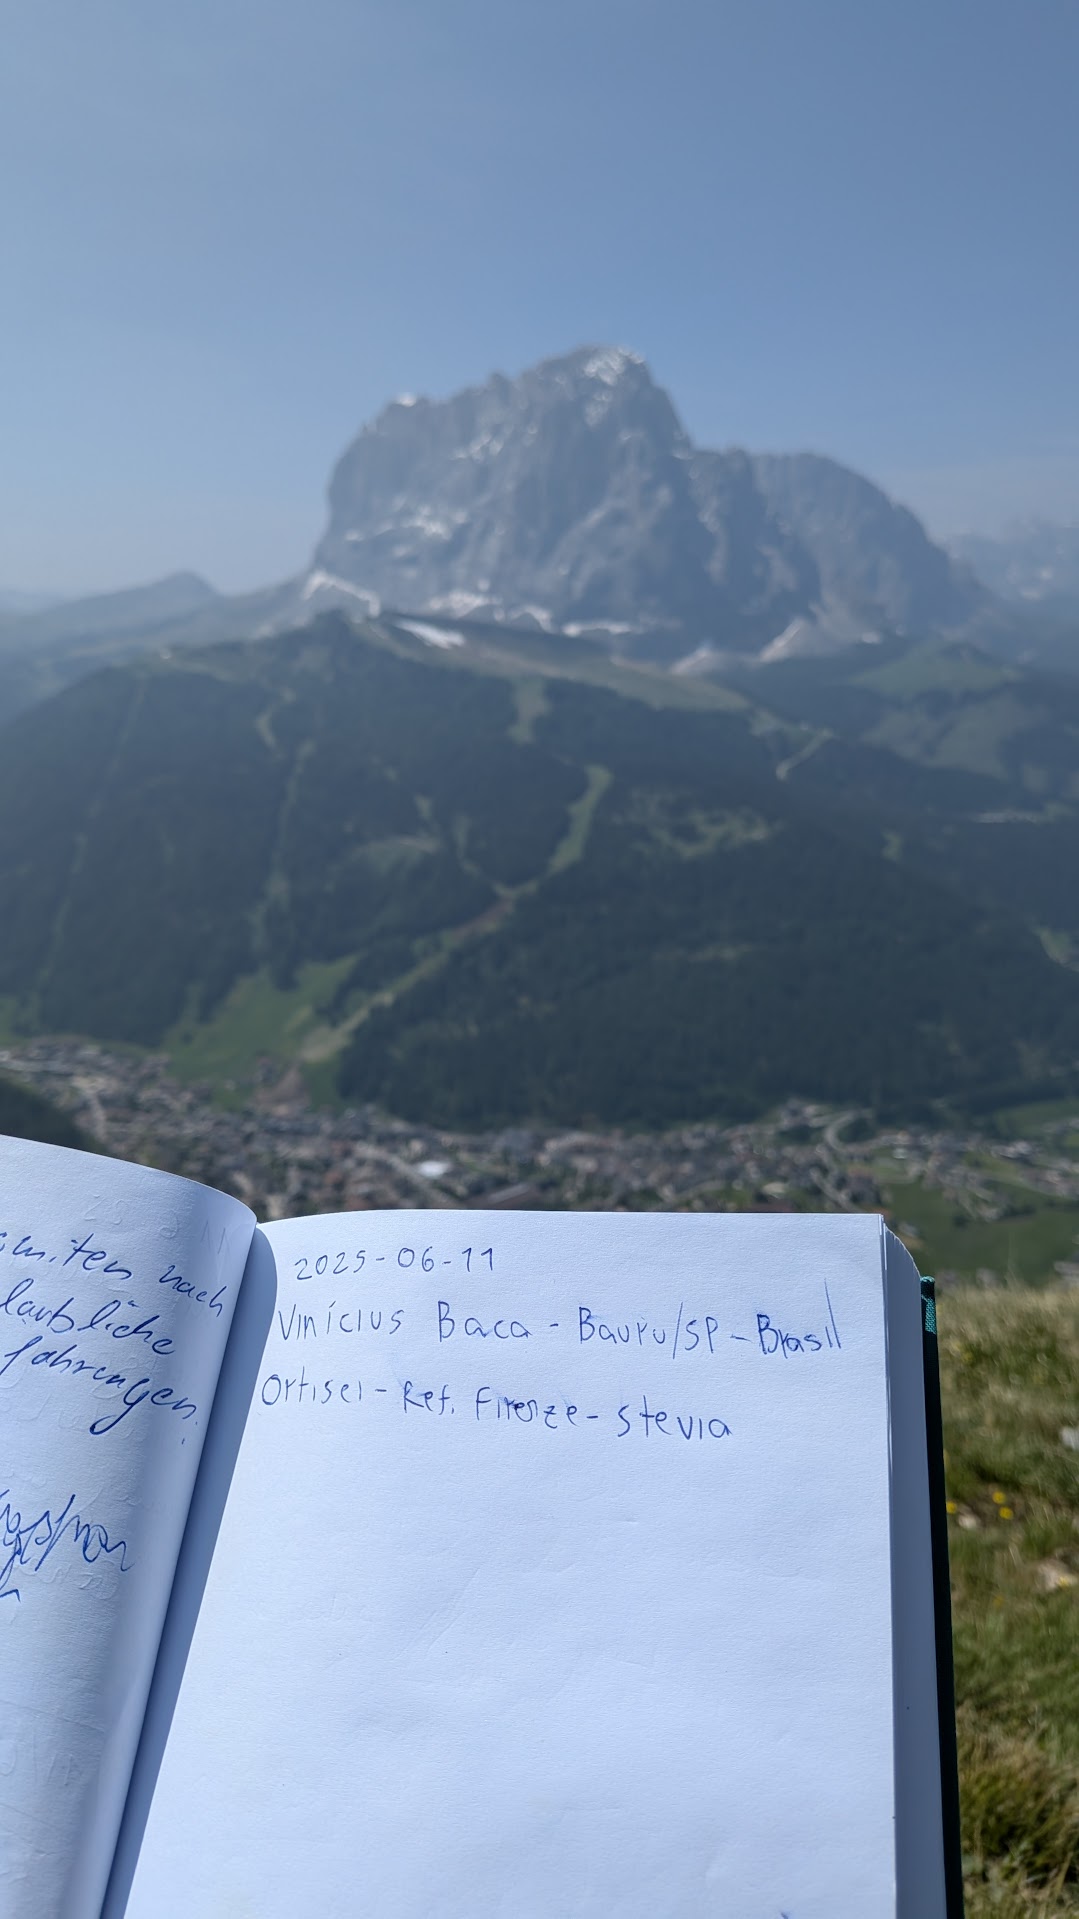 nach
fahrungen.
2025-06-11
Vinícius Baca - Bauru/SP - Brasil
Ortisei - Ref. Firenze - Stevia